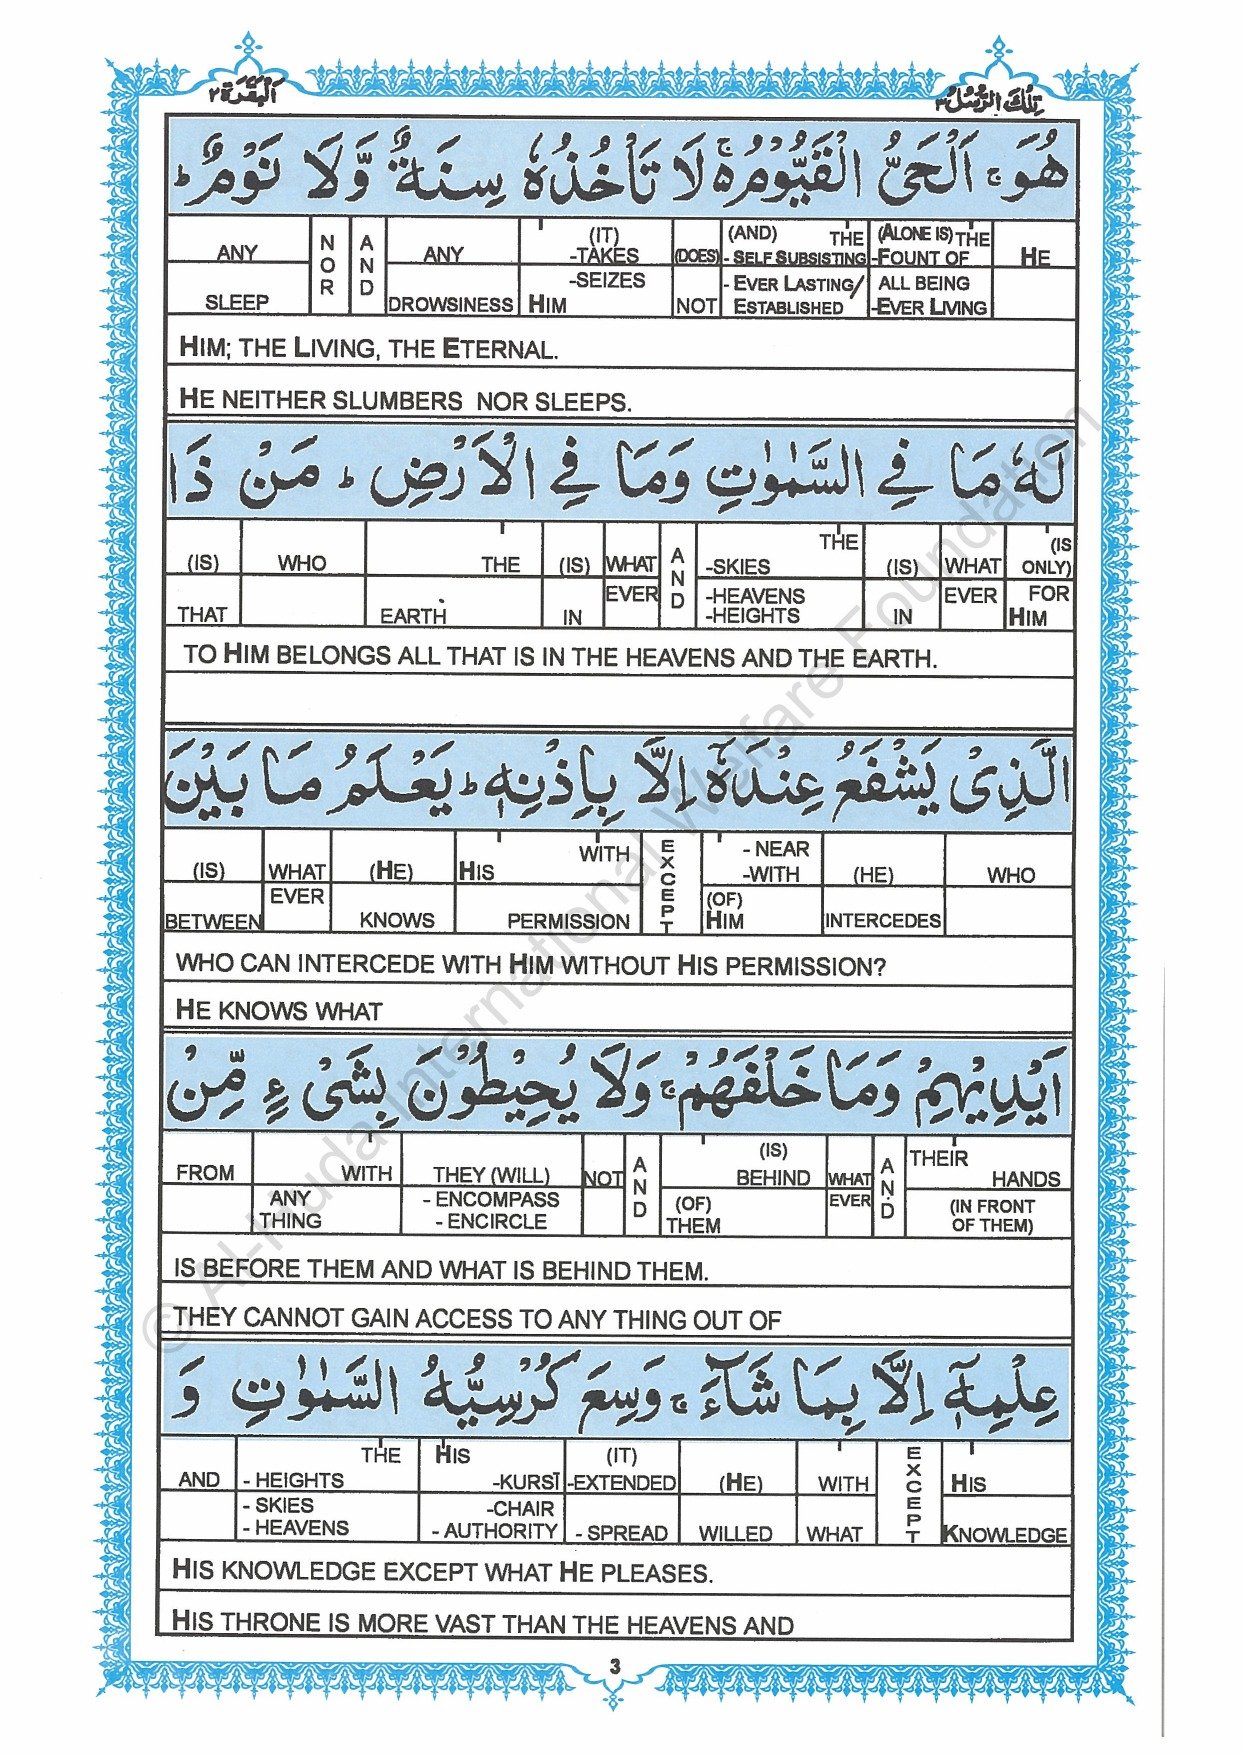 تِلْكَ الرُّسُلُ ٣
اَلْبَقَرَة ٢
هُوَ ۚ اَلْحَيُّ الْقَيُّوْمُ ۚ۬ لَا تَاْخُذُهٗ سِنَةٌ وَّلَا نَوْمٌ ؕ
ANY SLEEP | NOR | AND | ANY DROWSINESS | (IT) -TAKES -SEIZES HIM | (DOES) NOT | (AND) THE - SELF SUBSISTING - EVER LASTING/ ESTABLISHED | (ALONE IS) THE -FOUNT OF ALL BEING -EVER LIVING | HE
HIM; THE LIVING, THE ETERNAL.
HE NEITHER SLUMBERS NOR SLEEPS.
لَهٗ مَا فِي السَّمٰوٰتِ وَمَا فِي الْاَرْضِ ؕ مَنْ ذَا
(IS) THAT | WHO | THE EARTH | (IS) IN | WHAT EVER | AND | THE -SKIES -HEAVENS -HEIGHTS | (IS) IN | WHAT EVER | (IS ONLY) FOR HIM
TO HIM BELONGS ALL THAT IS IN THE HEAVENS AND THE EARTH.
الَّذِيْ يَشْفَعُ عِنْدَهٗٓ اِلَّا بِاِذْنِهٖ ؕ يَعْلَمُ مَا بَيْنَ
(IS) BETWEEN | WHAT EVER | (HE) KNOWS | HIS WITH PERMISSION | EXCEPT | - NEAR -WITH (OF) HIM | (HE) INTERCEDES | WHO
WHO CAN INTERCEDE WITH HIM WITHOUT HIS PERMISSION?
HE KNOWS WHAT
اَيْدِيْهِمْ وَمَا خَلْفَهُمْ ۚ وَلَا يُحِيْطُوْنَ بِشَيْءٍ مِّنْ
FROM | WITH ANY THING | THEY (WILL) - ENCOMPASS - ENCIRCLE | NOT | AND | (IS) BEHIND (OF) THEM | WHAT EVER | AND | THEIR HANDS (IN FRONT OF THEM)
IS BEFORE THEM AND WHAT IS BEHIND THEM.
THEY CANNOT GAIN ACCESS TO ANY THING OUT OF
عِلْمِهٖٓ اِلَّا بِمَا شَآءَ ۚ وَسِعَ كُرْسِيُّهُ السَّمٰوٰتِ وَ
AND | THE - HEIGHTS - SKIES - HEAVENS | HIS -KURSĪ -CHAIR - AUTHORITY | (IT) -EXTENDED - SPREAD | (HE) WILLED | WITH WHAT | EXCEPT | HIS KNOWLEDGE
HIS KNOWLEDGE EXCEPT WHAT HE PLEASES.
HIS THRONE IS MORE VAST THAN THE HEAVENS AND
3
© Al-Huda International Welfare Foundation